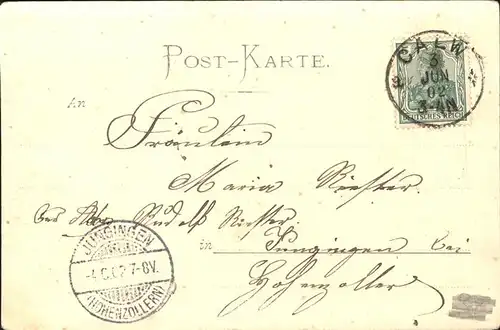 POST-KARTE.
CALW
3
JUN
02
3-4N
DEUTSCHES REICH
An
Fräulein
Maria Riester
bei Rudolf Riester.
in Jungingen bei
Hohenzollern
JUNGINGEN
7-8V.
(HOHENZOLLERN)